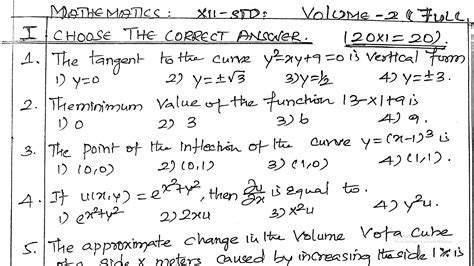 MATHEMATICS: XII-STD: VOLUME-2 (FULL
I CHOOSE THE CORRECT ANSWER. (20X1=20).
1. The tangent to the curve y²-xy+9=0 is vertical form
1) y=0 2) y=±√3 3) y=½ 4) y=±3.
2. The minimum value of the function |3-x|+9 is
1) 0 2) 3 3) 6 4) 9.
3. The point of the inflection of the curve y=(x-1)³ is
1) (0,0) 2) (0,1) 3) (1,0) 4) (1,1).
4. If u(x,y)=e^(x²+y²), then ∂u/∂x is equal to.
1) e^(x²+y²) 2) 2xu 3) x²u 4) y²u.
5. The approximate change in the Volume V of a cube
of a side x meters caused by increasing the side 1% is